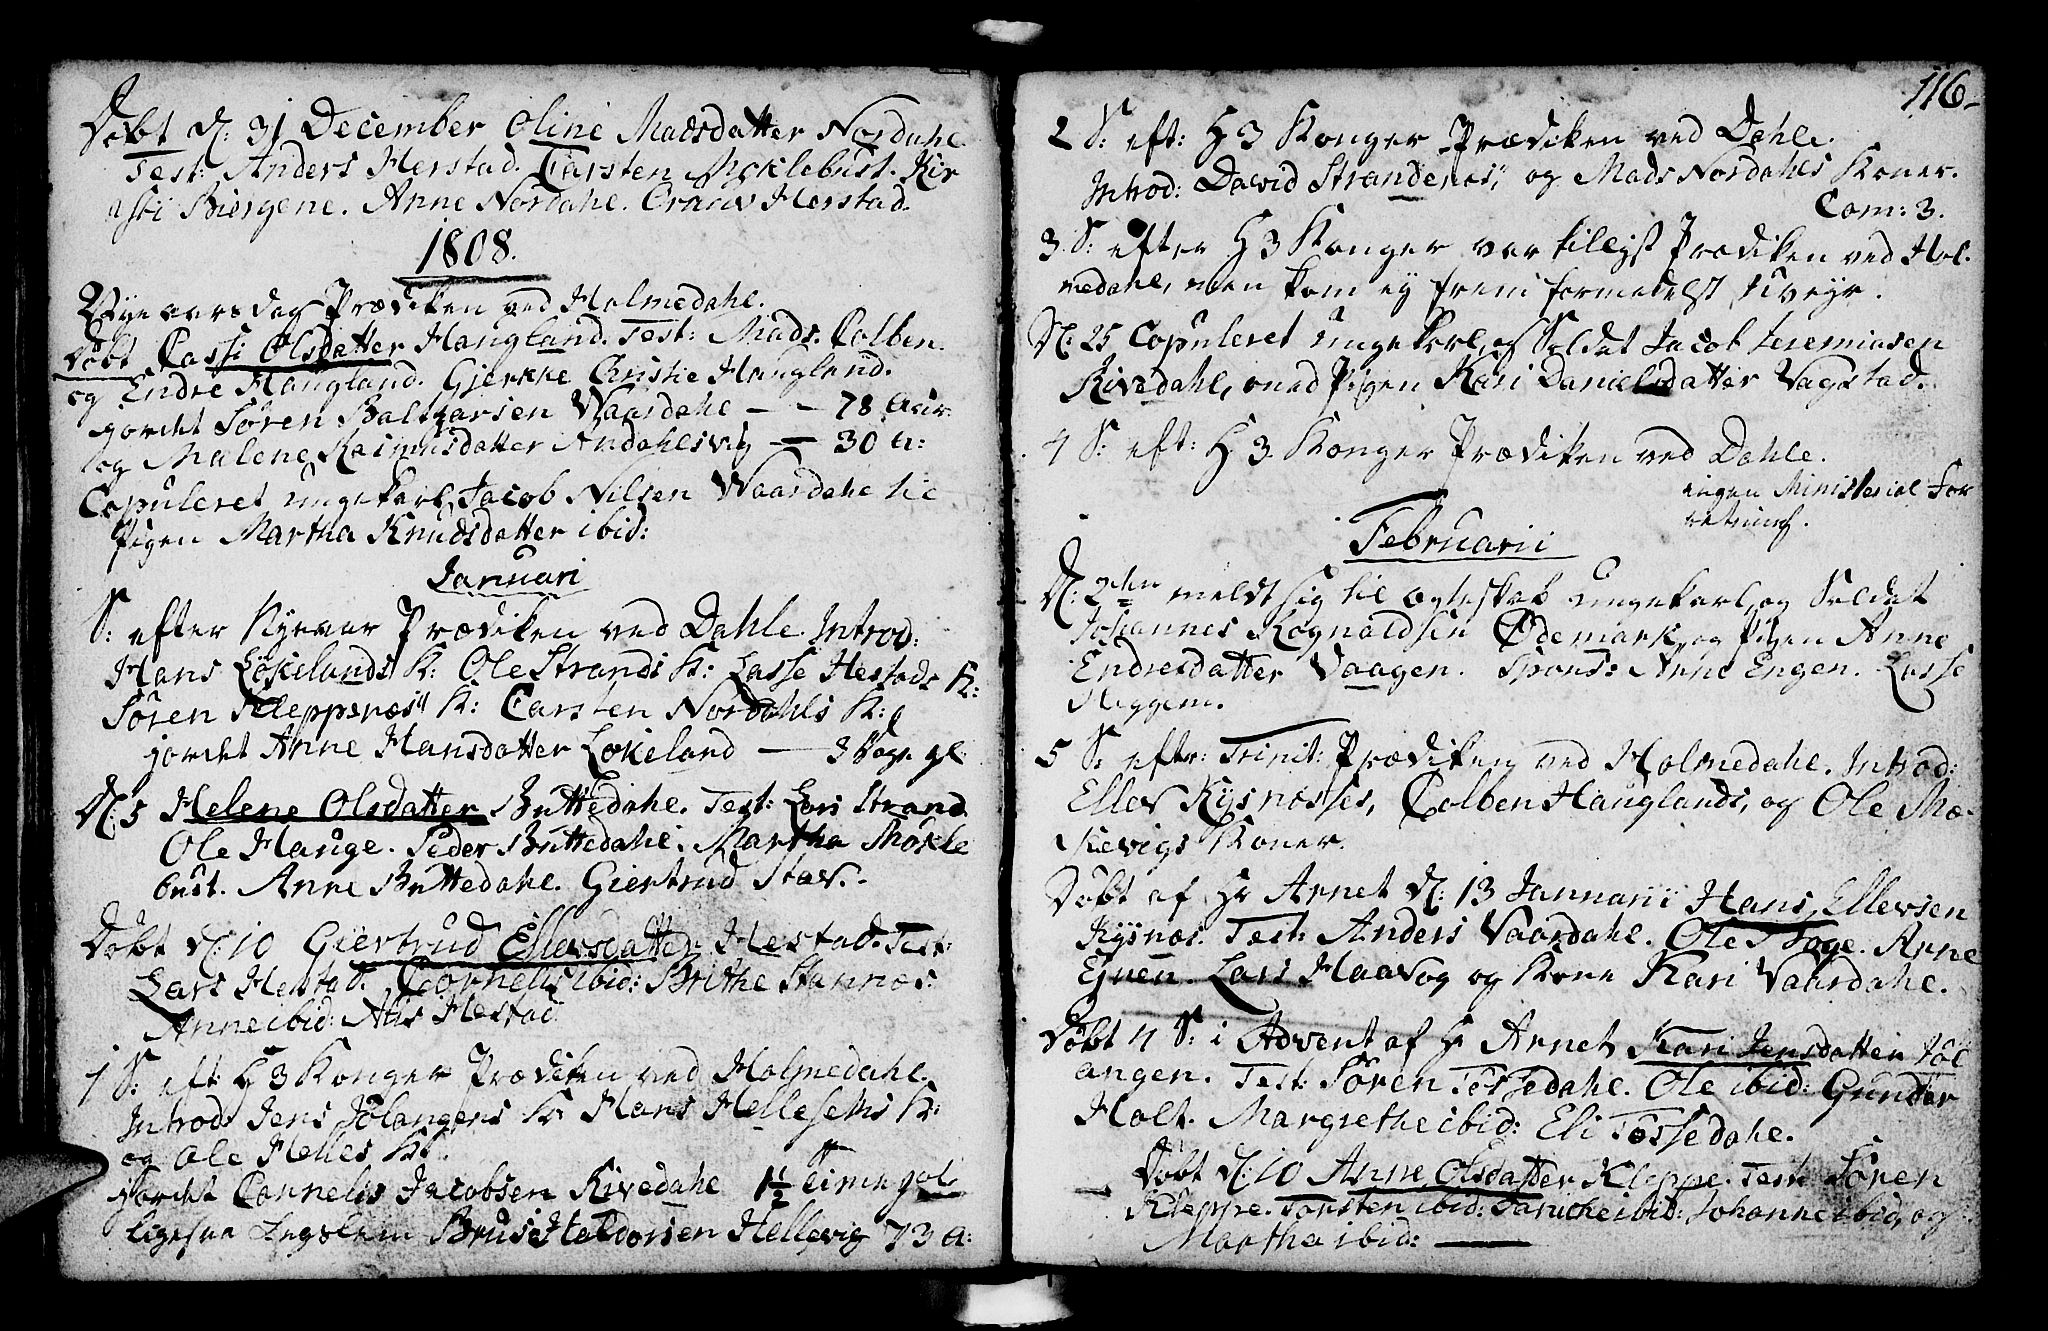 Döbt d: 31 December Oline Madsdatter Nordahl
Test: Anders Herstad. Carsten Møklebust. Kir
sti Biergene. Anne Nordahl. Herstad.
1808.
Nyeaarsdag Prædiken ved Holmedahl.
Döbt Olsdatter Haugland. Test: Mads. Colben.
og Endre Haugland. Gjertke Christie Haugland.
jordet Søren Baltzersen Waardahl — — 78 Aar.
og Malene Rasmusdatter Andahlsvig — 30 A:
Copuleret ungekarl Jacob Nilsen Waardahl til
Pigen Martha Knudsdatter ibid:
Januari
S: efter Nyeaar Prædiken ved Dahle. Introd:
Hans Lökelands K: Ole Strands K: Lasse Hestads K:
Søren Kleppenæs K: Carsten Nordahls K:
jordet Anne Hansdatter Lökeland — 3 Dage gl
D: 5 Helene Olsdatter Büttedahl. Test: Lars Strand
Ole Hauge. Peder Büttedahl. Martha Mökle
bust. Anne Büttedahl. Giertrud Stav.
Döbt d: 10 Giertrud Ellevsdatter Hestad. Test:
Lars Hestad. Cornelis ibid: Brithe Stannæs:
Anne ibid: Hestad
1 S: eft H 3 Konger Prædiken ved Holmedahl.
Introd: Jens Jölangers K: Hans Hellesems K:
og Ole Helles K:
jordet Cornelis Jacobsen Rivedahl 1½ time gal.
ligesaa Brusi Haldorsen Hellevig 73 A:
116
2 S: eft: H 3 Konger Prædiken ved Dahle.
Introd: David Strandenæs, og Mads Nordahls Koner.
Com: 3.
3. S: efter H 3 Konger var tillyst Prædiken ved Hol-
medahl, men kom ey frem formedelst Uveyr.
D: 25 Copuleret ungekarl og Soldat Jacob Jeremiasen
Rivedahl, med Pigen Kari Danielsdatter Vagstad.
4 S: eft: H 3 Konger Prædiken ved Dahle.
ingen Ministerial For
retning.
Februarii
D: 2den meldt sig til Ægteskab ungekarl og Soldat
Johannes Rognaldsen Ödemark, og Pigen Anne
Endresdatter Vaagen. Spons: Arne Engen. Lasse
Heggem.
5 S: eftr: Trinit: Prædiken ved Holmedahl. Introd:
Ellev Rysnæsses, Colben Hauglands, og Ole Mæ-
Koner.
Döbt af Hr Arnet d: 13 Januarii Hans Ellevsen
Rysnæs. Test: Anders Vaardahl. Ole Anne
Lars Haavog og Kone Kari Vaardahl.
Döbt 4 S: i Advent af Hr Arnet Kari Jensdatter Jöl
angen. Test: Søren Tössedahl. Ole ibid: Gunder
Holt. Margrethe ibid: Eli Tössedahl.
Döbt d: 10 Anne Olsdatter Kleppe. Test: Søren
Kleppe. Torsten ibid: ibid: Johanne ibid, og
Martha ibid: —